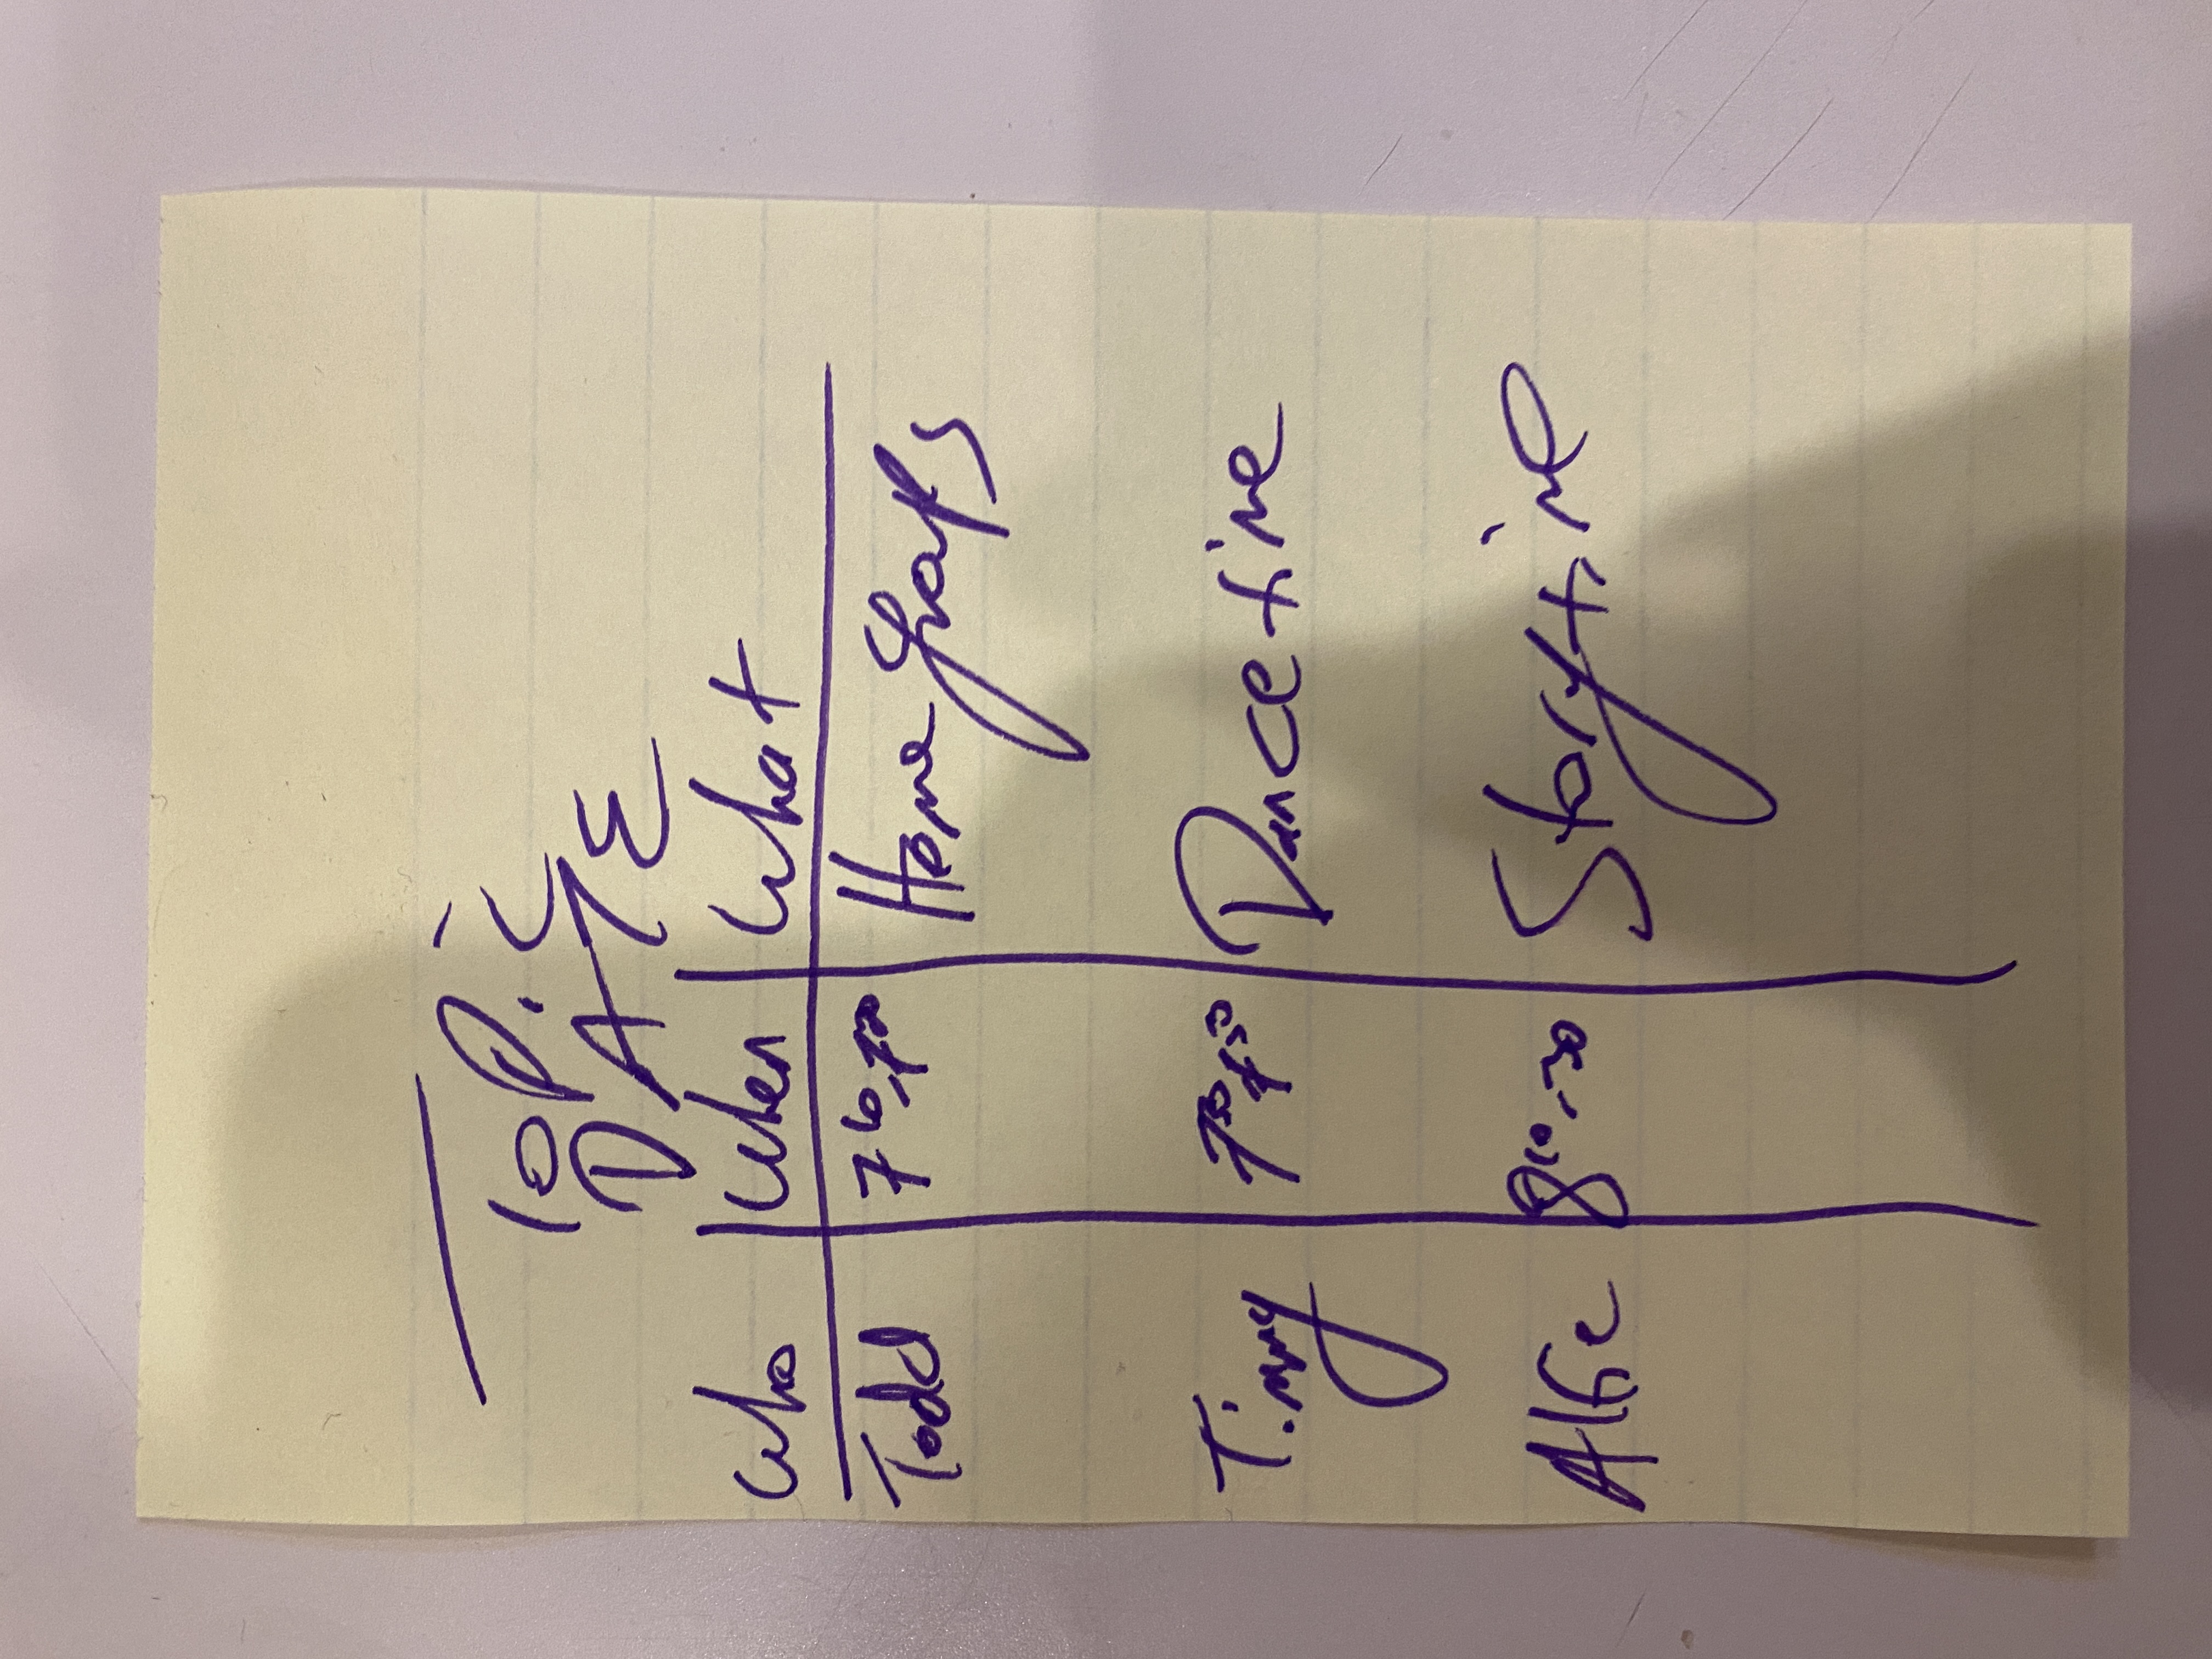 Topic
DATE
Who When What
Todd 7 10 - 7 20 Home Grafs
Timmy 7 30 - 7 50 Dance time
Alfie 8 10 - 30 Storytime